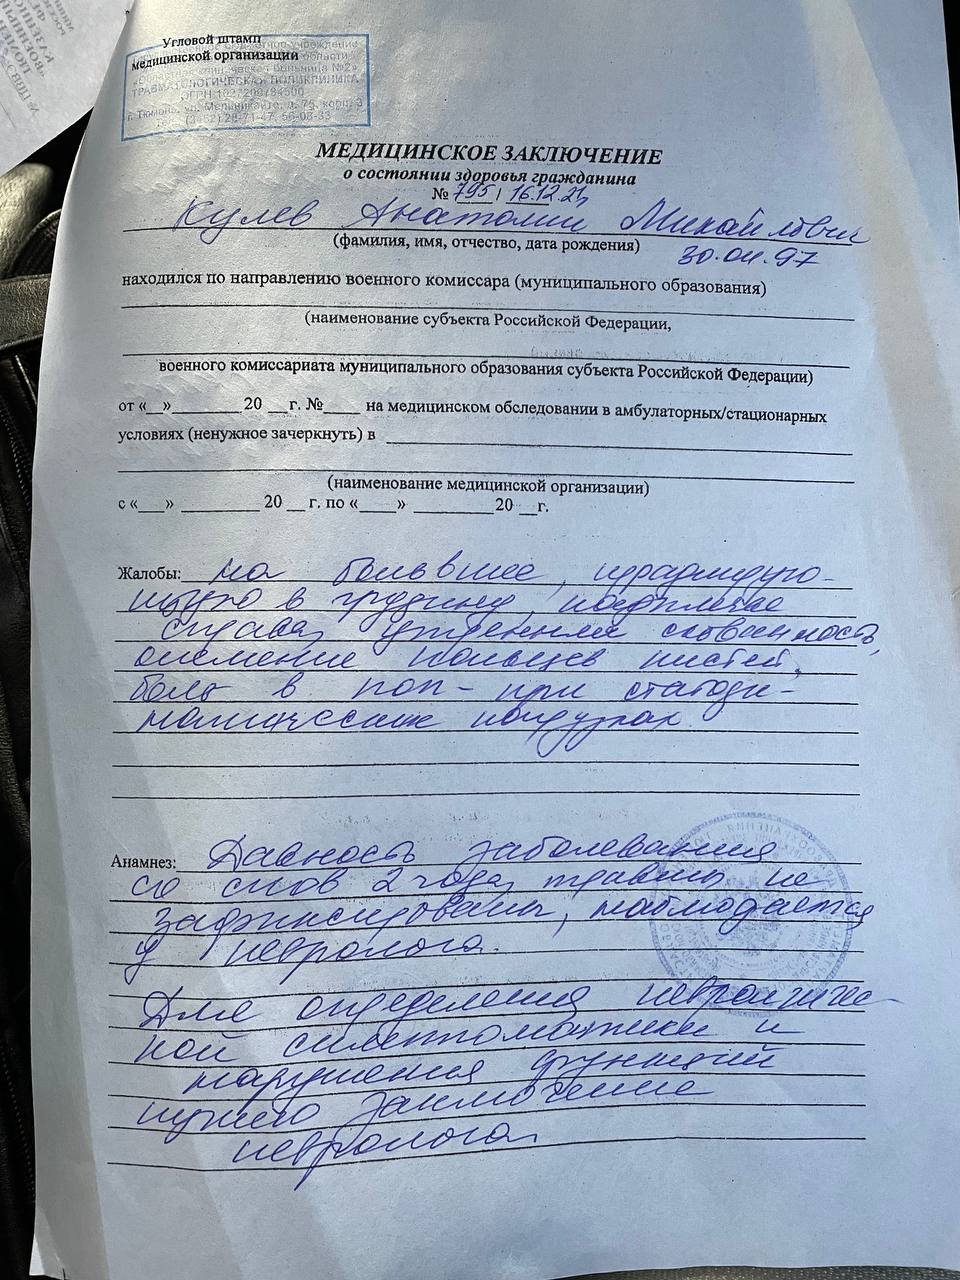 Угловой штамп
медицинской организации
ТРАВМАТОЛОГИЧЕСКАЯ ПОЛИКЛИНИКА
г. Тюмень, ул. Мельникайте, д. 75, корп. 3
МЕДИЦИНСКОЕ ЗАКЛЮЧЕНИЕ
о состоянии здоровья гражданина
№ 795 / 16.12.21
Кулев Анатолий Михайлович
(фамилия, имя, отчество, дата рождения)
97
находился по направлению военного комиссара (муниципального образования)
(наименование субъекта Российской Федерации,
военного комиссариата муниципального образования субъекта Российской Федерации)
от «__»________ 20 __г. №____ на медицинском обследовании в амбулаторных/стационарных
условиях (ненужное зачеркнуть) в
(наименование медицинской организации)
с «___» _________ 20 __ г. по «____» _________20 __г.
Жалобы: на боль в шее, иррадиирую-
щую в грудину, надплечье
справа, утренняя скованность,
онемение пальцев кистей,
боль в поп- при статоди-
намических нагрузках.
Анамнез: Давность заболевания
со слов 2 года, травмы не
зафиксированы, наблюдается
у невролога.
Для определения неврологичес-
кой симптоматики и
нарушения функций
нужно заключение
невролога.